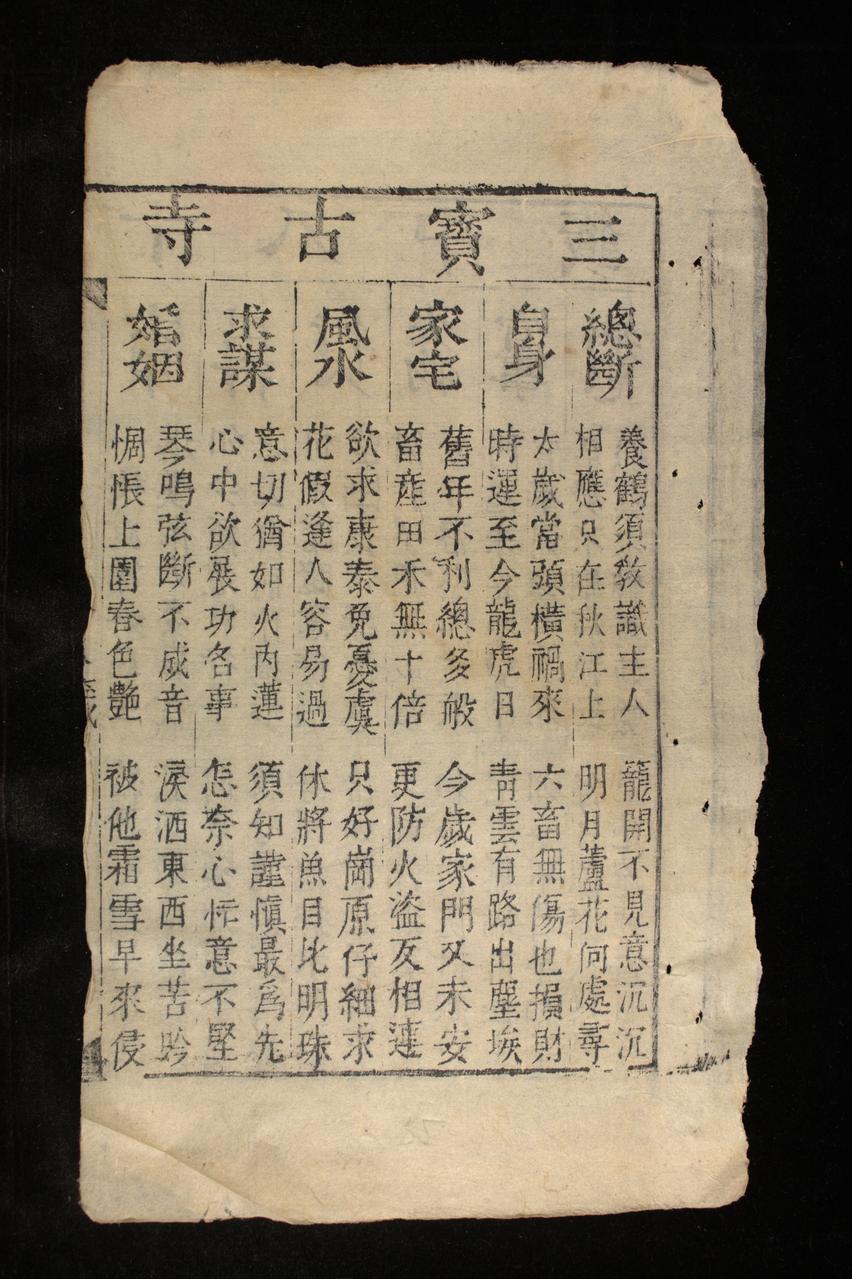 三寶古寺
總斷
養鶴須教識主人 籠開不見意沉沉
相應只在秋江上 明月蘆花何處尋
自身
太歲當頭橫禍來 六畜無傷也損財
時運至今龍虎日 青雲有路出塵埃
家宅
舊年不利總多般 今歲家門又未安
畜産田禾無十倍 更防火盗互相連
風水
欲求康泰免憂虞 只好崗原仔細求
花假逢人容易過 休將魚目比明珠
求謀
意切猶如火内蓮 須知謹慎最爲先
心中欲展功名事 怎奈心忙意不堅
婚姻
琴鳴弦斷不成音 淚洒東西坐苦吟
惆悵上園春色艶 被他霜雪早來侵